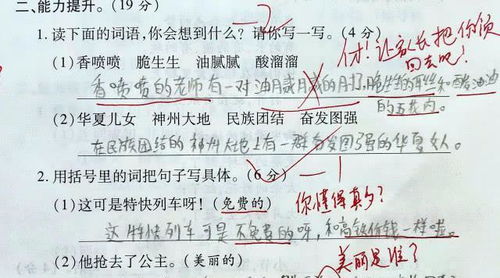 二、能力提升。(19分)
-7
1.读下面的词语,你会想到什么?请你写一写。(4分)
(1)香喷喷 脆生生 油腻腻 酸溜溜
付!让家长把你领回去吧!
香喷喷的老师有一对油腻腻的
的五花肉。
(2)华夏儿女 神州大地 民族团结 奋发图强
在民族团结的神州大地上有一群奋发图强的华夏女人。
2.用括号里的词把句子写具体。(6分)
-1
(1)这可是特快列车呀!(免费的)
你懂得真多?
这特快列车可是不免费的呀,和高铁价钱一样啦。
(2)他抢去了公主。(美丽的)
美丽是谁?